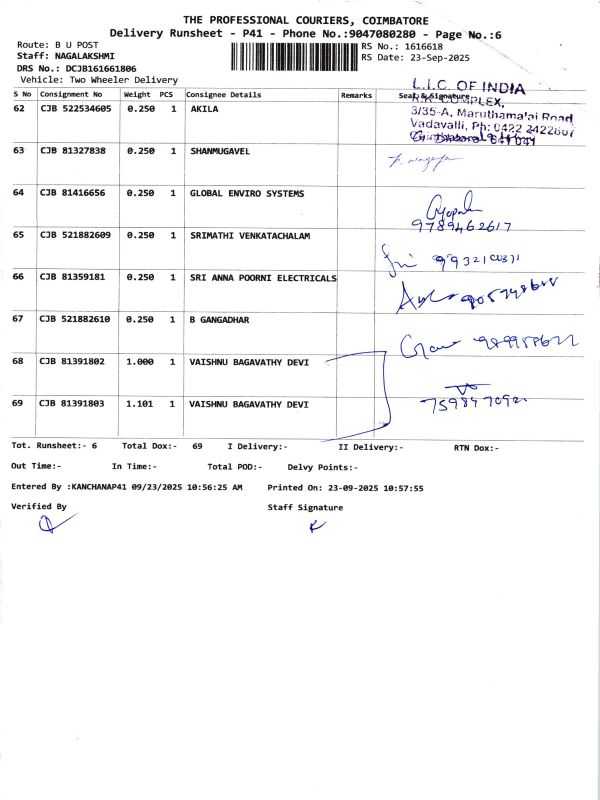 THE PROFESSIONAL COURIERS, COIMBATORE
Delivery Runsheet - P41 - Phone No.:9047080280 - Page No.:6
Route: B U POST
RS No.: 1616618
Staff: NAGALAKSHMI
RS Date: 23-Sep-2025
DRS No.: DCJB161661806
Vehicle: Two Wheeler Delivery
L.I.C. OF INDIA
S No Consignment No Weight PCS Consignee Details Remarks Seal & Signature
R.K. COMPLEX,
62 CJB 522534605 0.250 1 AKILA
3/35-A, Maruthamalai Road,
Vadavalli, Ph: 0422 2422607
63 CJB 81327838 0.250 1 SHANMUGAVEL
64 CJB 81416656 0.250 1 GLOBAL ENVIRO SYSTEMS
9789462617
65 CJB 521882609 0.250 1 SRIMATHI VENKATACHALAM
66 CJB 81359181 0.250 1 SRI ANNA POORNI ELECTRICALS
67 CJB 521882610 0.250 1 B GANGADHAR
68 CJB 81391802 1.000 1 VAISHNU BAGAVATHY DEVI
69 CJB 81391803 1.101 1 VAISHNU BAGAVATHY DEVI
Tot. Runsheet:- 6 Total Dox:- 69 I Delivery:- II Delivery:- RTN Dox:-
Out Time:- In Time:- Total POD:- Delvy Points:-
Entered By :KANCHANAP41 09/23/2025 10:56:25 AM Printed On: 23-09-2025 10:57:55
Verified By Staff Signature